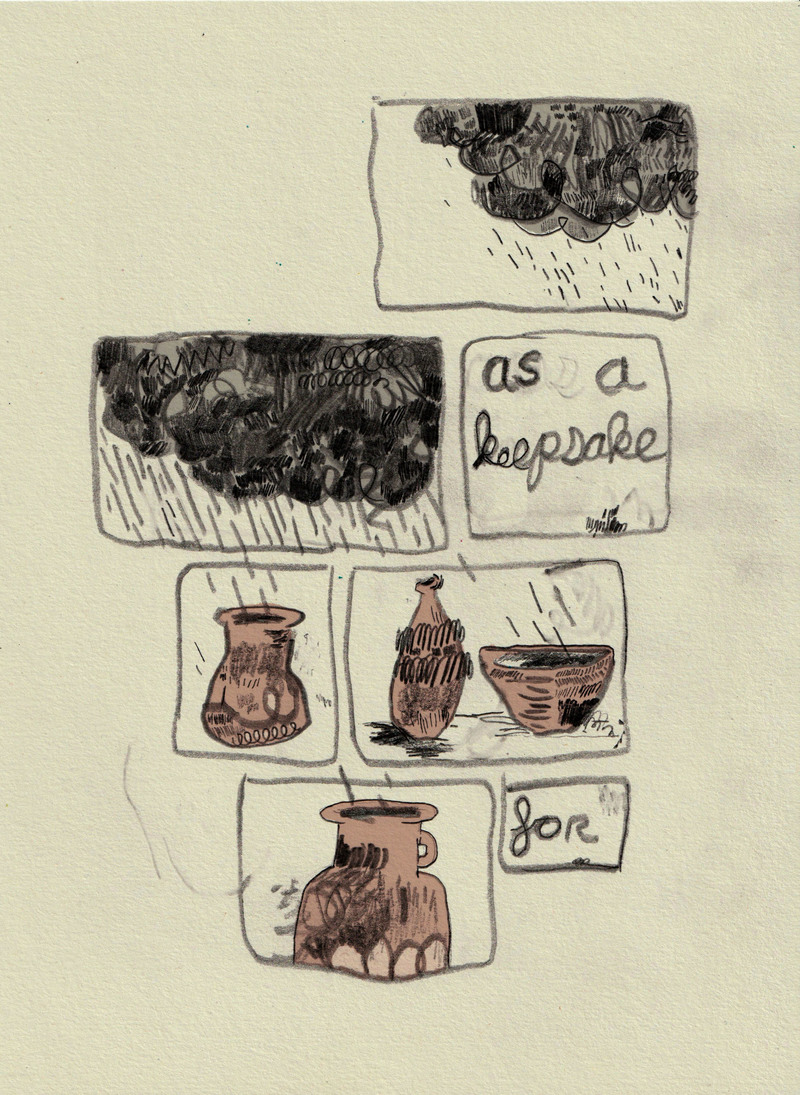 as a
keepsake
for